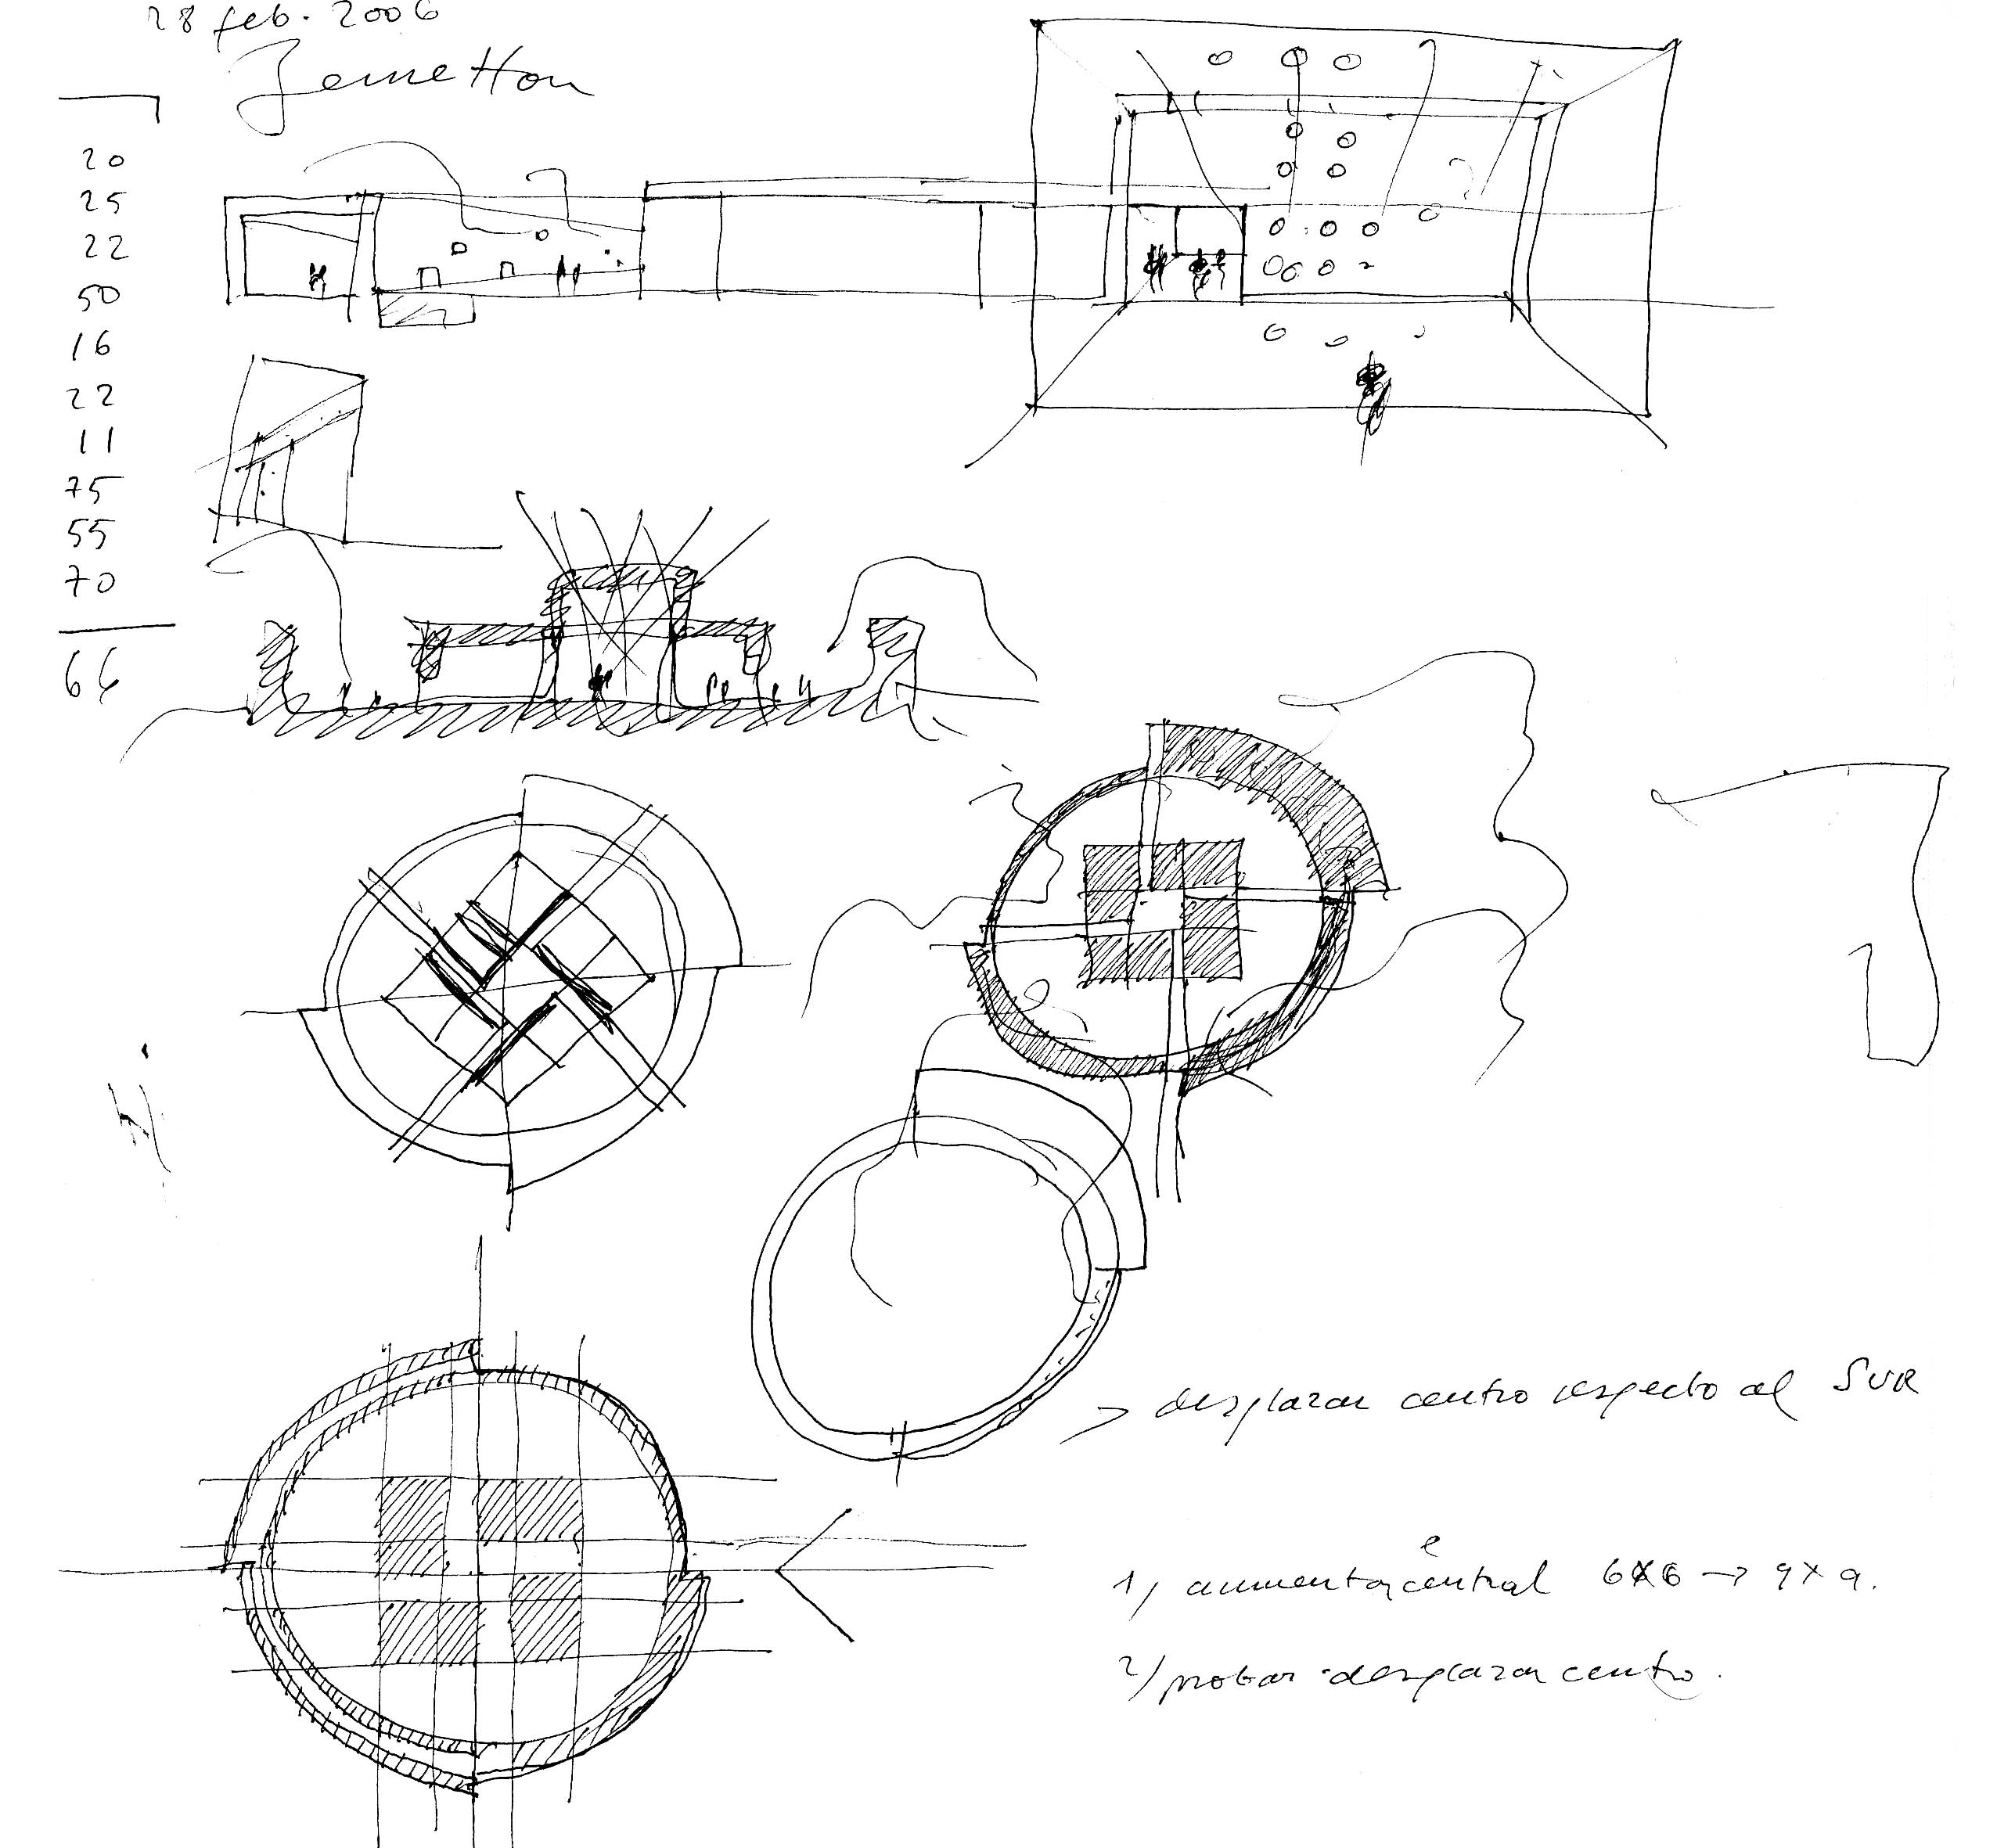 28 feb. 2006
Benetton
20
25
22
50
16
22
11
75
55
70
66
desplazar centro respecto al SUR
e
1) aumentar central 6x6 → 9x9.
2) probar desplazar centro.